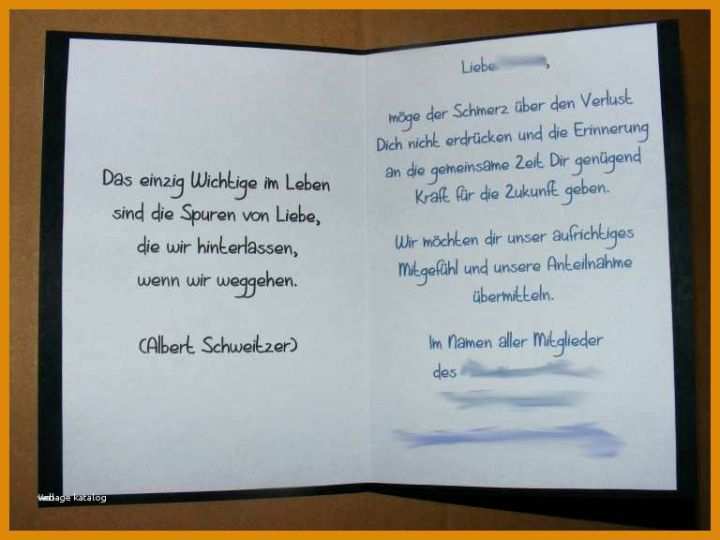 Das einzig Wichtige im Leben
sind die Spuren von Liebe,
die wir hinterlassen,
wenn wir weggehen.
(Albert Schweitzer)
Liebe ,
möge der Schmerz über den Verlust
Dich nicht erdrücken und die Erinnerung
an die gemeinsame Zeit Dir genügend
Kraft für die Zukunft geben.
Wir möchten dir unser aufrichtiges
Mitgefühl und unsere Anteilnahme
übermitteln.
Im Namen aller Mitglieder
des
katalog